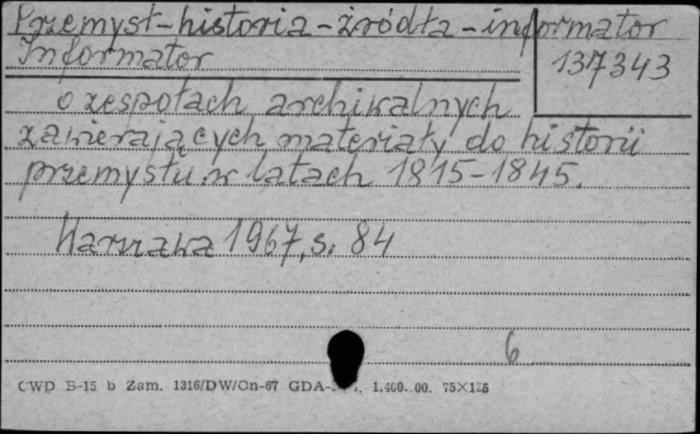 Przemysł-historia-źródła-informator
Informator
137343
o zespołach archiwalnych
zawierających materiały do historii
przemysłu w latach 1815-1845.
Warszawa 1967, s. 84
6
CWD B-15 b Zam. 1316/DW/On-67 GDA-